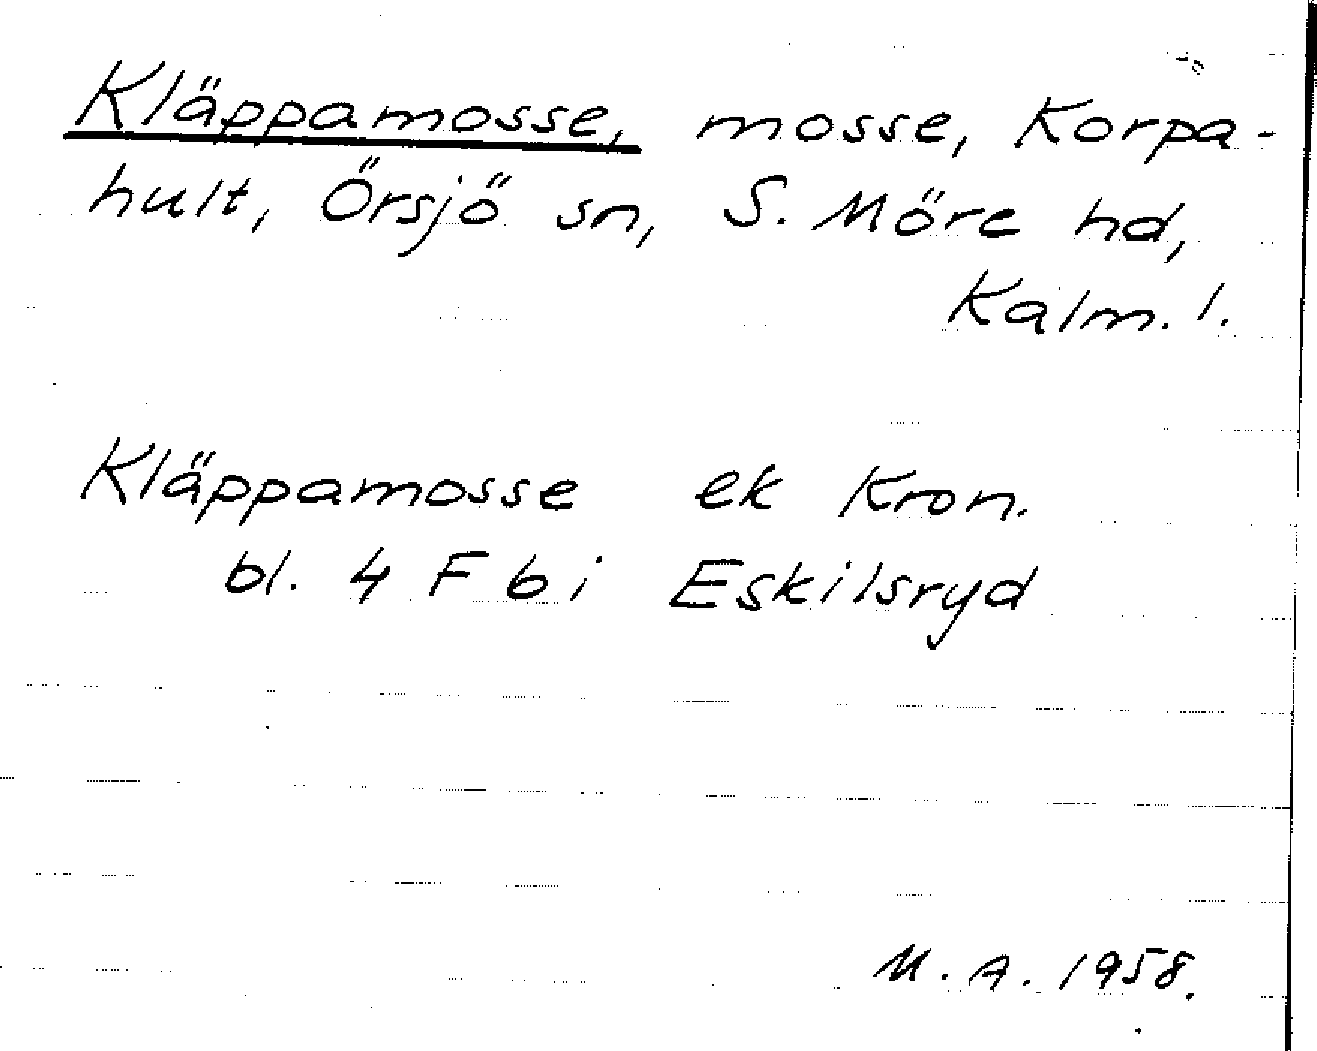 Kläppamosse, mosse, Korpa-
hult, Örsjö sn, S. Möre hd,
Kalm. l.
Kläppamosse ek Kron.
bl. 4 F b i Eskilsryd
M. A. 1958.